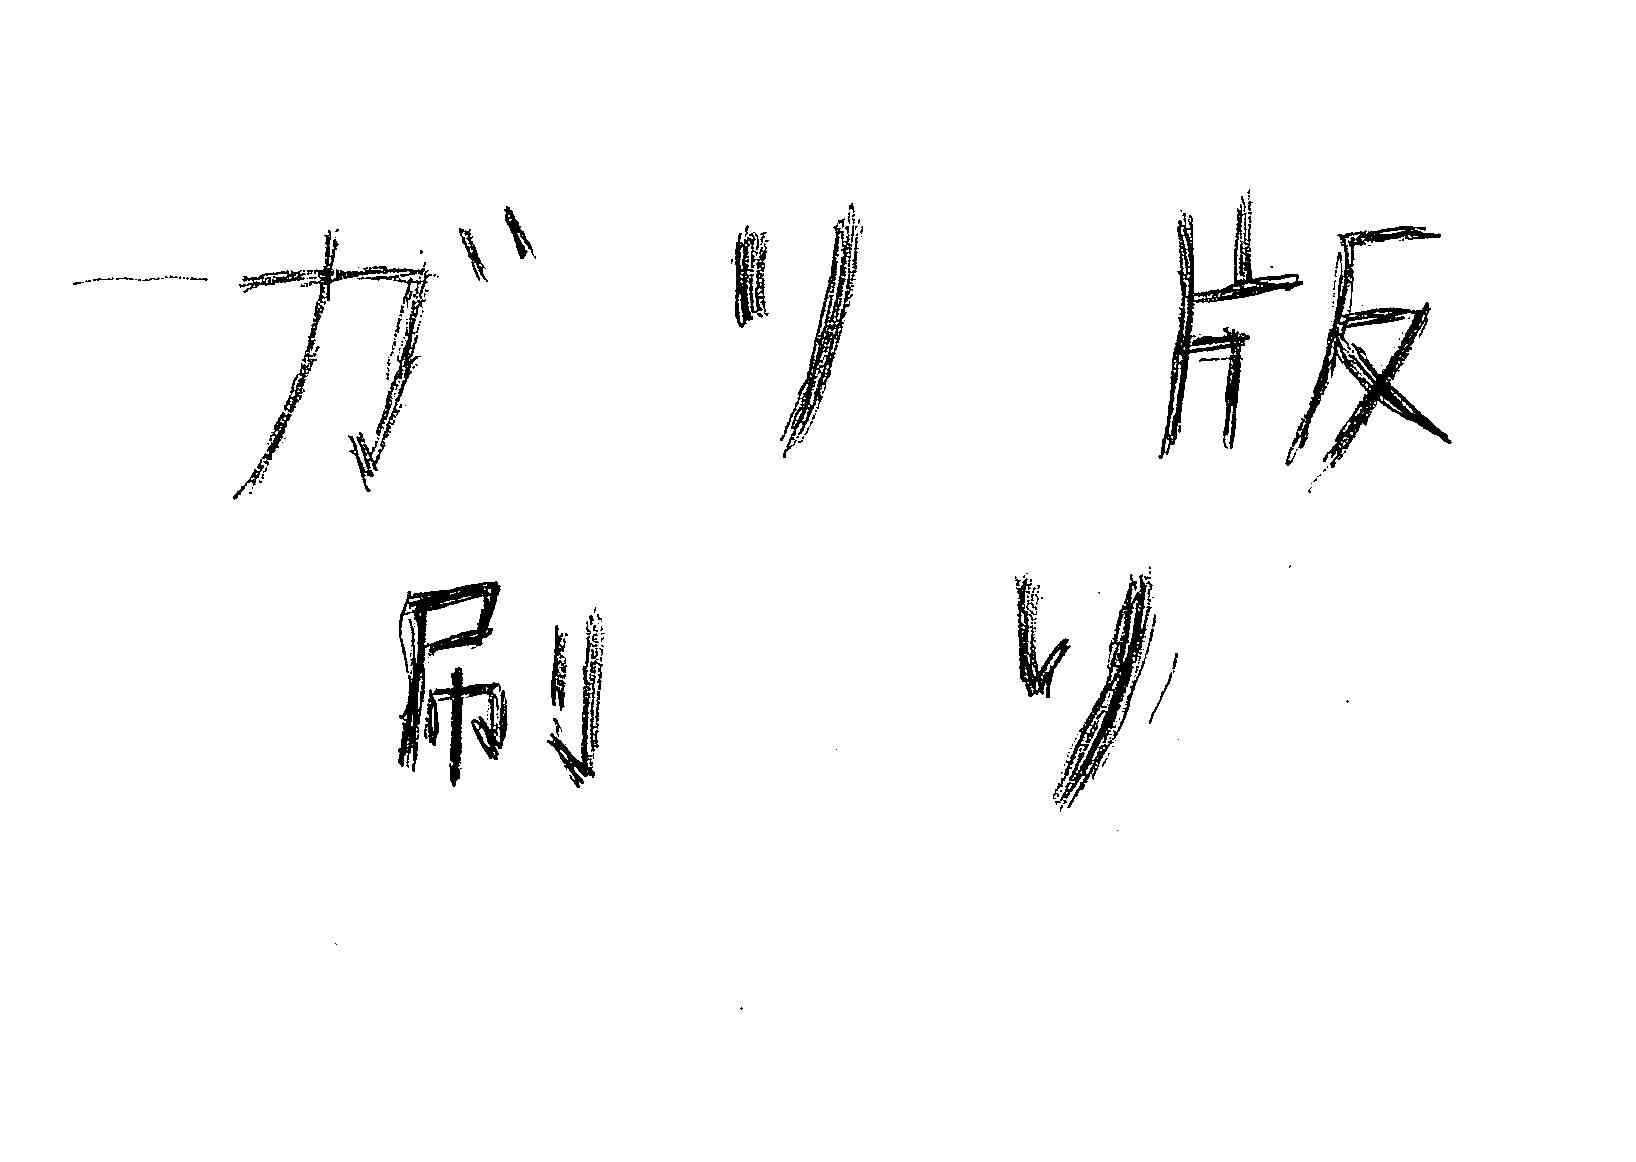 ガリ版
刷り